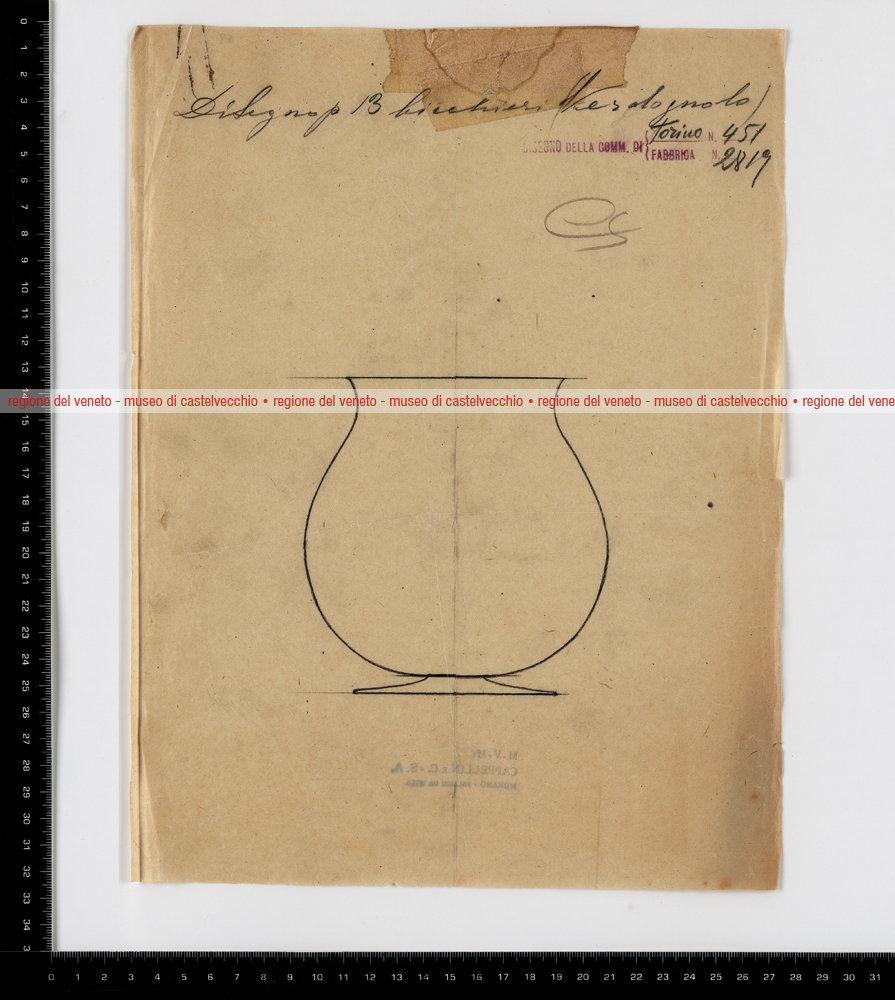 Disegno p 13 bicchieri (Verdognolo)
DISEGNO DELLA COMM. DI { Torino N. 451
{ FABBRICA N. 2819
regione del veneto - museo di castelvecchio • regione del veneto - museo di castelvecchio • regione del veneto - museo di castelvecchio • regione del vene
M.V.M.
CAPPELLIN & C. - S. A.
MURANO -
0 1 2 3 4 5 6 7 8 9 10 11 12 13 14 15 16 17 18 19 20 21 22 23 24 25 26 27 28 29 30 31 32 33 34 3
0 1 2 3 4 5 6 7 8 9 10 11 12 13 14 15 16 17 18 19 20 21 22 23 24 25 26 27 28 29 30 31